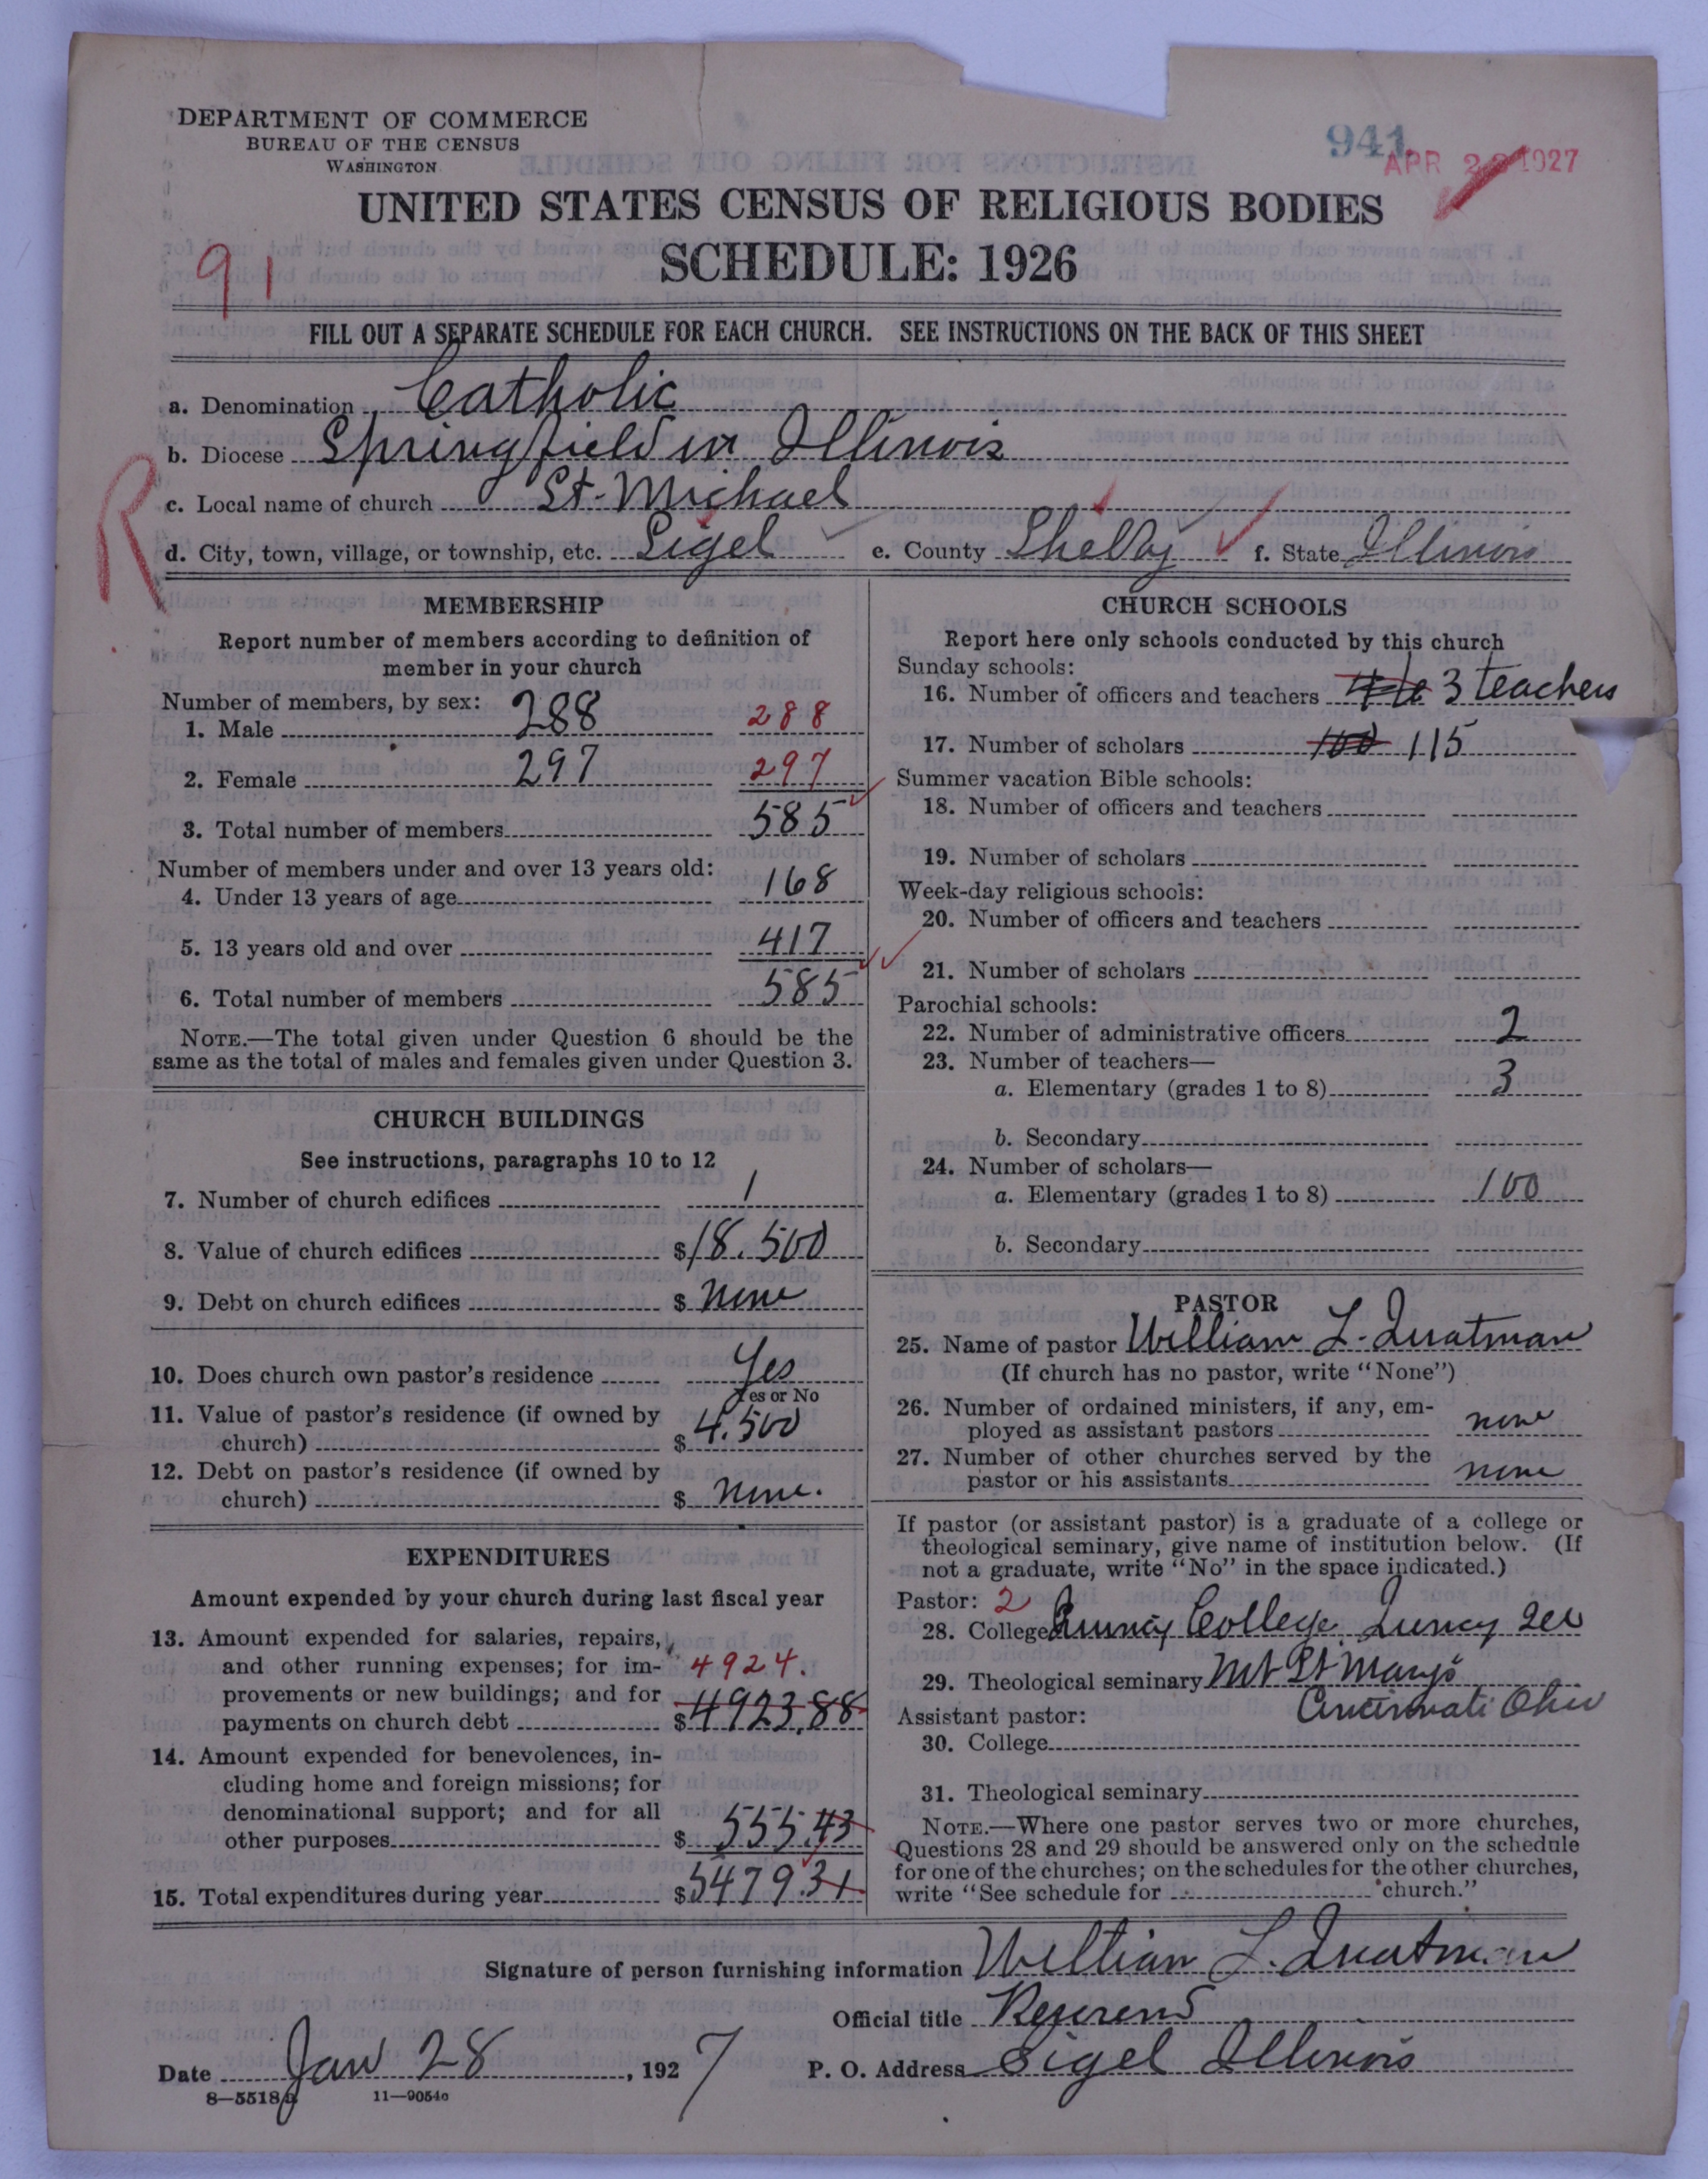 DEPARTMENT OF COMMERCE
BUREAU OF THE CENSUS
WASHINGTON
941
APR 28 1927
UNITED STATES CENSUS OF RELIGIOUS BODIES
SCHEDULE: 1926
91
FILL OUT A SEPARATE SCHEDULE FOR EACH CHURCH. SEE INSTRUCTIONS ON THE BACK OF THIS SHEET
a. Denomination Catholic
b. Diocese Springfield in Illinois
R
c. Local name of church St. Michael
d. City, town, village, or township, etc. Sigel e. County Shelby f. State Illinois
MEMBERSHIP
Report number of members according to definition of
member in your church
Number of members, by sex:
1. Male 288 288
2. Female 297 297
3. Total number of members 585
Number of members under and over 13 years old:
4. Under 13 years of age 168
5. 13 years old and over 417
6. Total number of members 585
NOTE.—The total given under Question 6 should be the
same as the total of males and females given under Question 3.
CHURCH BUILDINGS
See instructions, paragraphs 10 to 12
7. Number of church edifices 1
8. Value of church edifices $18.500
9. Debt on church edifices $ None
10. Does church own pastor's residence Yes
Yes or No
11. Value of pastor's residence (if owned by
church) $ 4.500
12. Debt on pastor's residence (if owned by
church) $ None.
EXPENDITURES
Amount expended by your church during last fiscal year
13. Amount expended for salaries, repairs,
and other running expenses; for im- 4924.
provements or new buildings; and for
payments on church debt $4923.88
14. Amount expended for benevolences, in-
cluding home and foreign missions; for
denominational support; and for all
other purposes $ 555.43
15. Total expenditures during year $5479.31
CHURCH SCHOOLS
Report here only schools conducted by this church
Sunday schools:
16. Number of officers and teachers 3 teachers
17. Number of scholars 100 115
Summer vacation Bible schools:
18. Number of officers and teachers
19. Number of scholars
Week-day religious schools:
20. Number of officers and teachers
21. Number of scholars
Parochial schools:
22. Number of administrative officers 2
23. Number of teachers—
a. Elementary (grades 1 to 8) 3
b. Secondary
24. Number of scholars—
a. Elementary (grades 1 to 8) 100
b. Secondary
PASTOR
25. Name of pastor William L. Quatman
(If church has no pastor, write "None")
26. Number of ordained ministers, if any, em-
ployed as assistant pastors none
27. Number of other churches served by the
pastor or his assistants none
If pastor (or assistant pastor) is a graduate of a college or
theological seminary, give name of institution below. (If
not a graduate, write "No" in the space indicated.)
Pastor: 2
28. College Quincy College, Quincy Ill
29. Theological seminary Mt St Mary's
Cincinnati Ohio
Assistant pastor:
30. College
31. Theological seminary
NOTE.—Where one pastor serves two or more churches,
Questions 28 and 29 should be answered only on the schedule
for one of the churches; on the schedules for the other churches,
write "See schedule for church."
Signature of person furnishing information William L. Quatman
Official title Reverend
Date Jan 28, 1927 P. O. Address Sigel Illinois
8—5518a 11—9054c